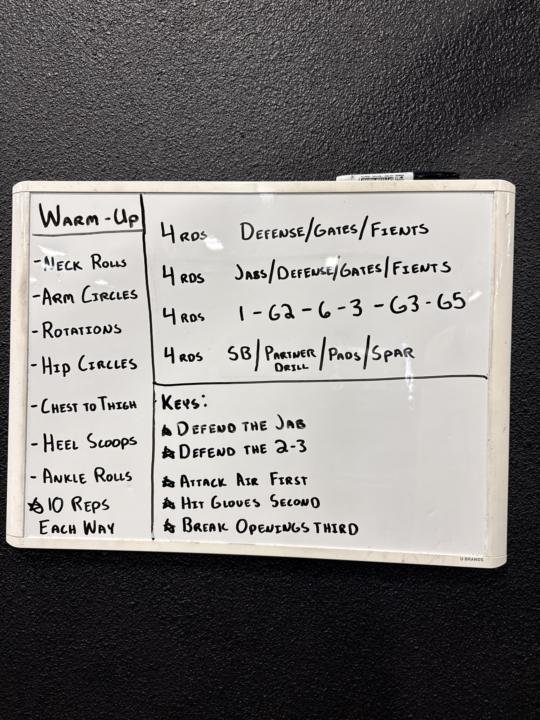 WARM-UP
-NECK ROLLS
-ARM CIRCLES
-ROTATIONS
-HIP CIRCLES
-CHEST TO THIGH
-HEEL SCOOPS
-ANKLE ROLLS
☆10 REPS
EACH WAY
4 RDS DEFENSE/GATES/FIENTS
4 RDS JABS/DEFENSE/GATES/FIENTS
4 RDS 1-G2-6-3-G3-G5
4 RDS SB/PARTNER DRILL/PADS/SPAR
KEYS:
☆ DEFEND THE JAB
☆ DEFEND THE 2-3
☆ ATTACK AIR FIRST
☆ HIT GLOVES SECOND
☆ BREAK OPENINGS THIRD
U BRANDS